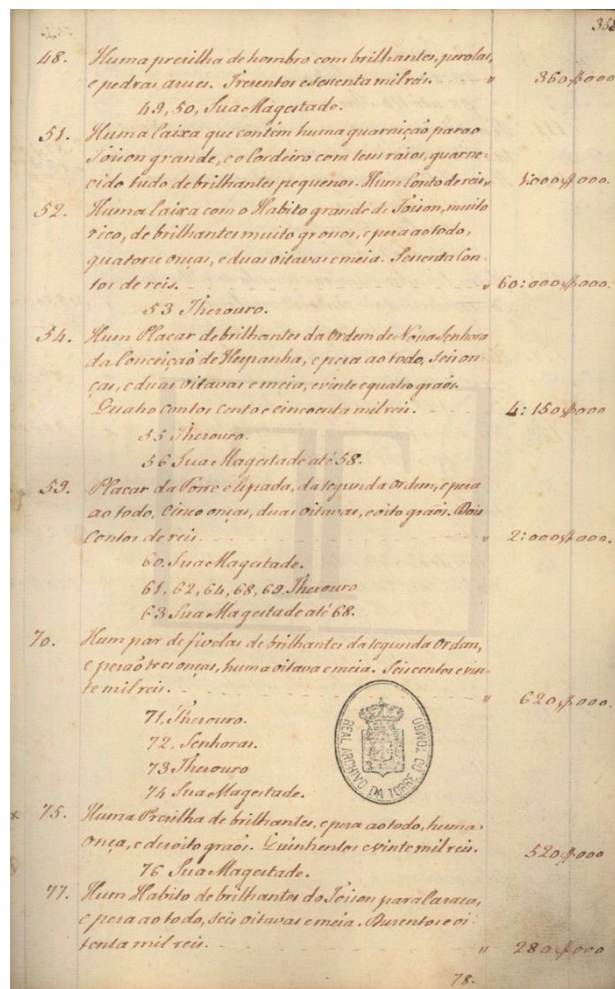 358
48. Huma presilha de hombro com brilhantes, perolas,
e pedras azues. Tresentos e sesenta mil reis. " 360,$000
49, 50, Sua Magestade.
51. Huma Caixa que contém huma guarnição para o
Toison grande, e o Cordeiro com seus raios, guarne-
cido tudo de brilhantes pequenos. Hum Conto de reis " 1:000,$000.
52. Huma Caixa com o Habito grande do Toison, muito
rico, de brilhantes muito grossos, e peza ao todo,
quatorze onças, e duas oitavas e meia. Sesenta Con-
tos de reis. " 60:000,$000.
53 Thezouro.
54. Hum Placar de brilhantes da Ordem de Nossa Senhora
da Conceição de Hespanha, e peza ao todo, seis on-
ças, e duas oitavas e meia, e vinte e quatro graõs.
Quatro Contos cento e cincoenta mil reis. 4:150,$000
55 Thezouro.
56 Sua Magestade até 58.
59. Placar da Torre e Espada, da segunda Ordem, e peza
ao todo, Cinco onças, duas oitavas, e oito graõs. Dois
Contos de reis " 2:000$000.
60. Sua Magestade.
61, 62, 64, 68, 69. Thezouro
63 Sua Magestade até 68.
70. Hum par de fivelas de brilhantes da segunda Ordem,
e pezaõ tres onças, huma oitava e meia. Seis centos e vin-
te mil reis. " 620,$000.
71. Thezouro.
72. Senhoras.
73 Thezouro
74 Sua Magestade.
REAL ARCHIVO DA TORRE DO TOMBO
75. Huma Presilha de brilhantes, e peza ao todo, huma
Onça, e dezoito graõs. Quinhentos e vinte mil reis. 520,$000
76 Sua Magestade.
77. Hum Habito de brilhantes do Toison para Casaca,
e peza ao todo, seis oitavas e meia. Duzentos e oi-
tenta mil reis. " 280,$000
78.